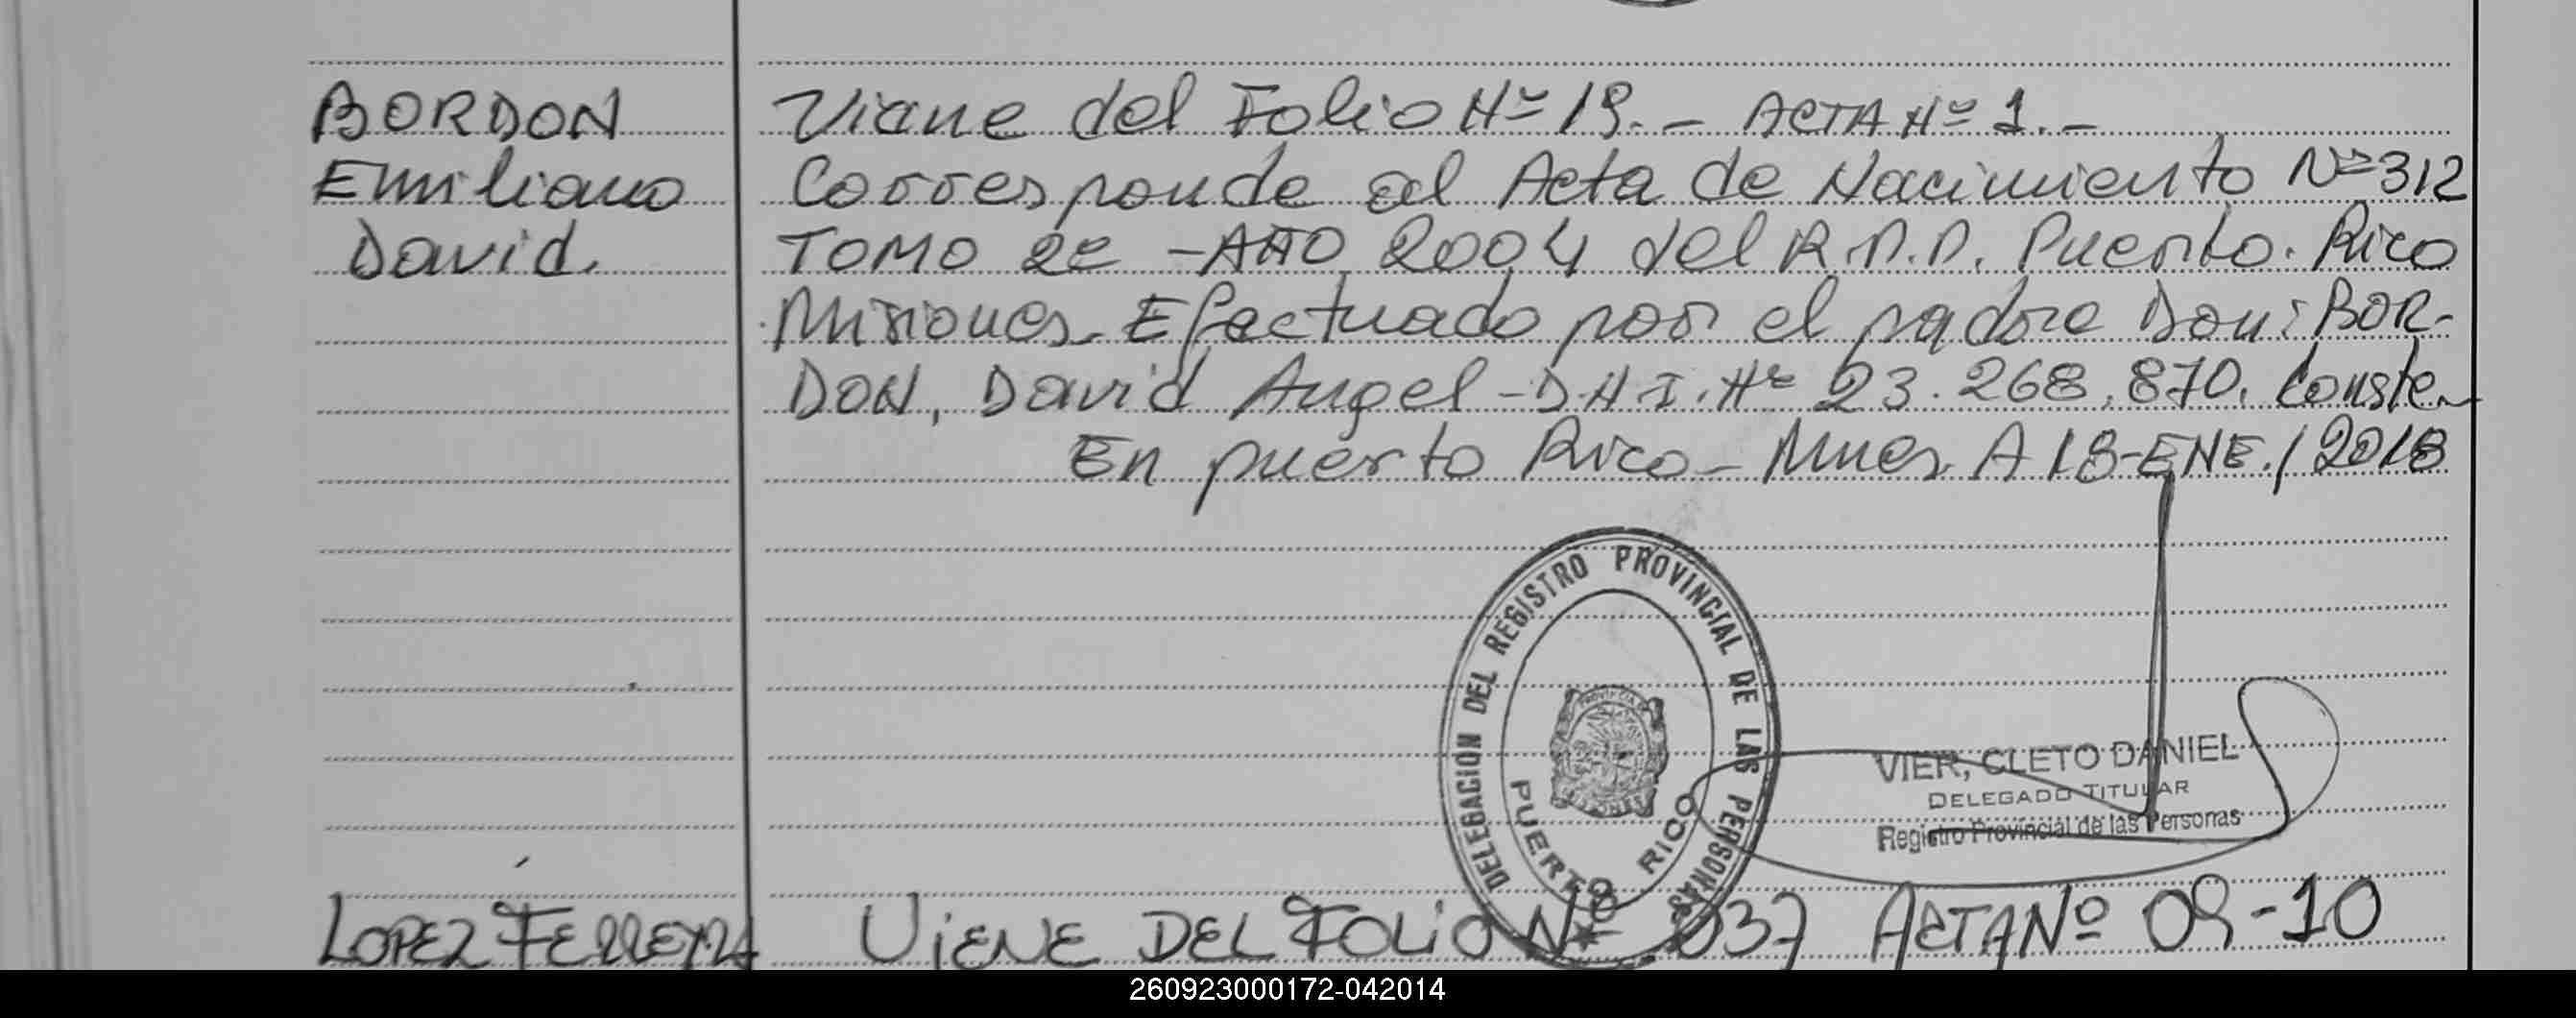 BORDON Viene del Folio Nº 19.- ACTA Nº 1.-
Emiliano Corresponde al Acta de Nacimiento Nº 312
David. TOMO 2º -AÑO 2004 del R.P.P. Puerto. Rico
Misiones. Efectuado por el padre Don: BOR-
DON, David Angel - D.N.I. Nº 23.268.870. Conste.
En puerto Rico - Mnes. A 18-ENE./2018
DELEGACION DEL REGISTRO PROVINCIAL DE LAS PERSONAS
PROVINCIA DE
MISIONES
PUERTO RICO
VIER, CLETO DANIEL
DELEGADO TITULAR
Registro Provincial de las Personas
LOPEZ FERREYRA VIENE DEL FOLIO Nº 037 ACTA Nº 09-10
260923000172-042014